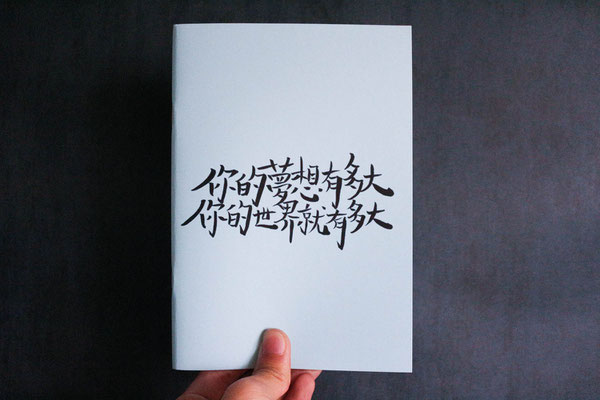 你的夢想有多大
你的世界就有多大